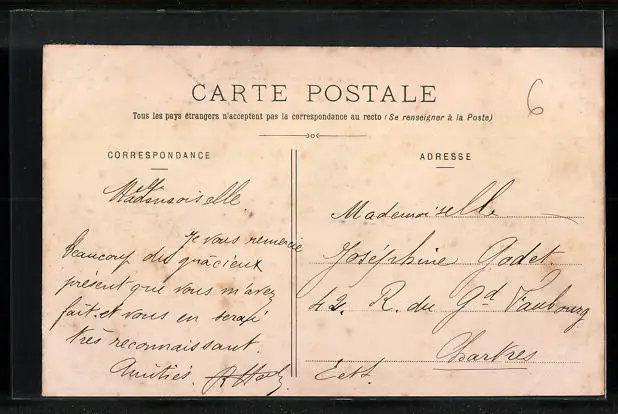 CARTE POSTALE
6
Tous les pays étrangers n'acceptent pas la correspondance au recto (Se renseigner à la Poste)
CORRESPONDANCE
Mademoiselle
Je vous remercie
beaucoup du grâcieux
présent que vous m'avez
fait et vous en serai
très reconnaissant.
Amitiés.
ADRESSE
Mademoiselle
Joséphine Godet
42. R. du Gd Faubourg
Chartres